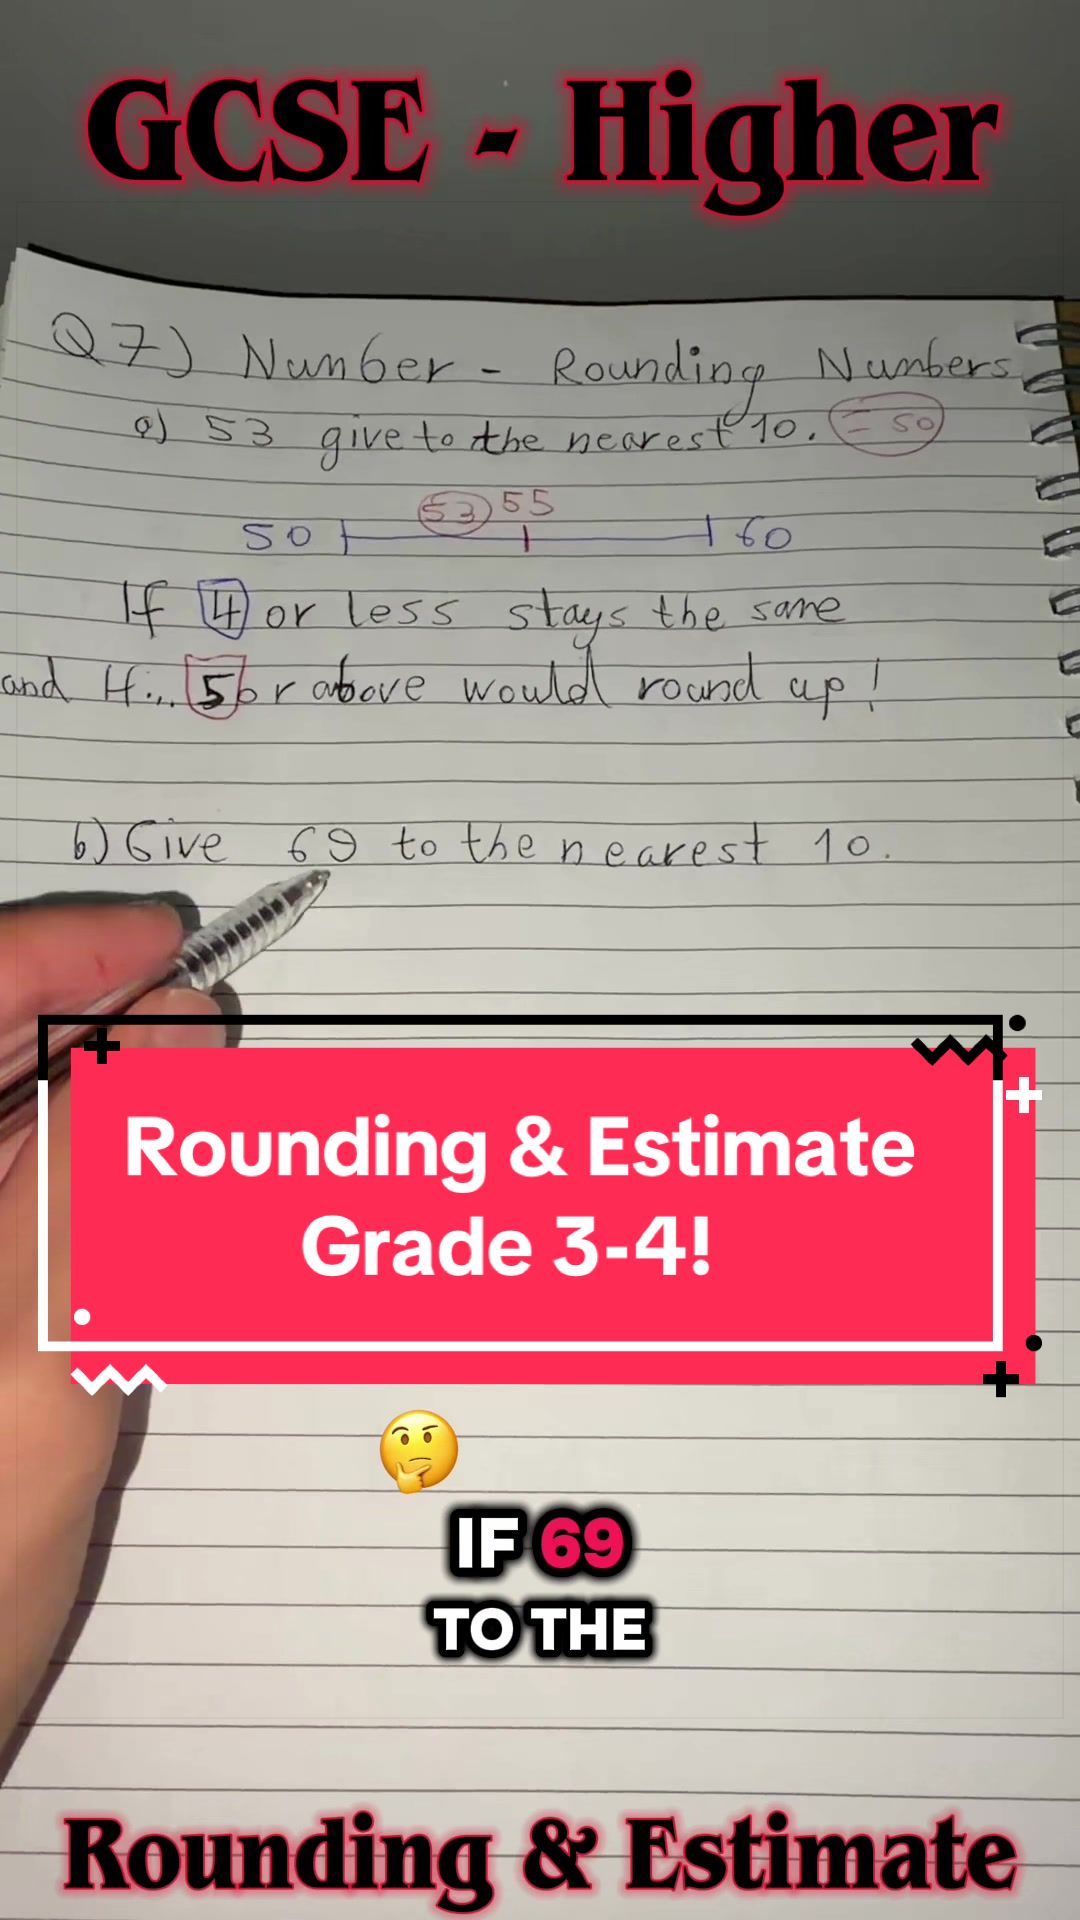 GCSE - Higher
Q7) Number - Rounding Numbers
a) 53 give to the nearest 10. = 50
53 55
50 60
If 4 or less stays the same
and If... 5 or above would round up!
b) Give 69 to the nearest 10.
Rounding & Estimate
Grade 3-4!
IF 69
TO THE
Rounding & Estimate